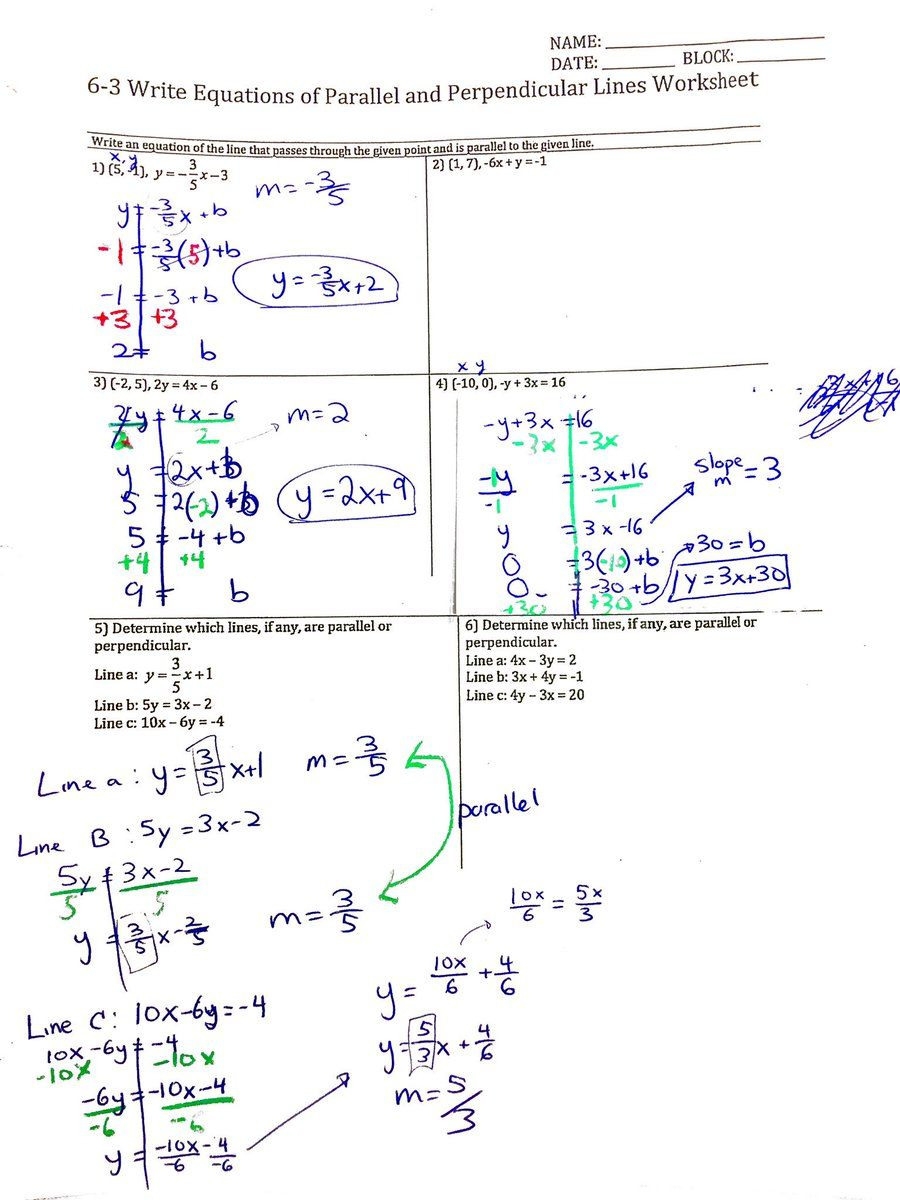 NAME:
DATE: BLOCK:
6-3 Write Equations of Parallel and Perpendicular Lines Worksheet
Write an equation of the line that passes through the given point and is parallel to the given line.
x, y
1) (5, -1), y = -3/5 x - 3
m = -3/5
y = -3/5 x + b
-1 = -3/5 (5) + b
y = -3/5 x + 2
-1 = -3 + b
+3 +3
2 = b
2) (1, 7), -6x + y = -1
3) (-2, 5), 2y = 4x – 6
2y = 4x - 6
2 2
m = 2
y = 2x + b
5 = 2(-2) + b
y = 2x + 9
5 = -4 + b
+4 +4
9 = b
x y
4) (-10, 0), -y + 3x = 16
-y + 3x = 16
-3x -3x
-y = -3x + 16
-1 -1
slope m = 3
y = 3x - 16
0 = 3(-10) + b
30 = b
0 = -30 + b
y = 3x + 30
+30 +30
5) Determine which lines, if any, are parallel or
perpendicular.
Line a: y = 3/5 x + 1
Line b: 5y = 3x – 2
Line c: 10x – 6y = -4
Line a: y = 3/5 x + 1 m = 3/5
parallel
Line B: 5y = 3x - 2
5y = 3x - 2
5 5
y = 3/5 x - 2/5 m = 3/5
Line C: 10x - 6y = -4
10x - 6y = -4
-10x -10x
-6y = -10x - 4
-6 -6
y = -10x/-6 - 4/-6
10x/6 = 5x/3
y = 10x/6 + 4/6
y = 5/3 x + 4/6
m = 5/3
6) Determine which lines, if any, are parallel or
perpendicular.
Line a: 4x – 3y = 2
Line b: 3x + 4y = -1
Line c: 4y – 3x = 20